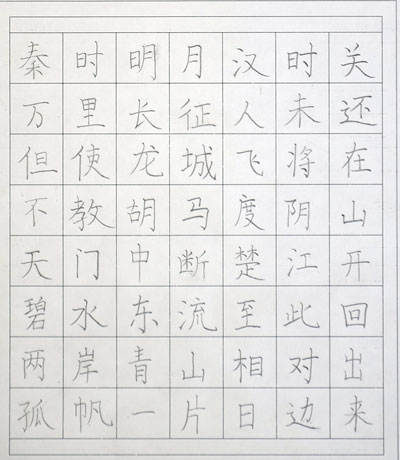 秦时明月汉时关
万里长征人未还
但使龙城飞将在
不教胡马度阴山
天门中断楚江开
碧水东流至此回
两岸青山相对出
孤帆一片日边来